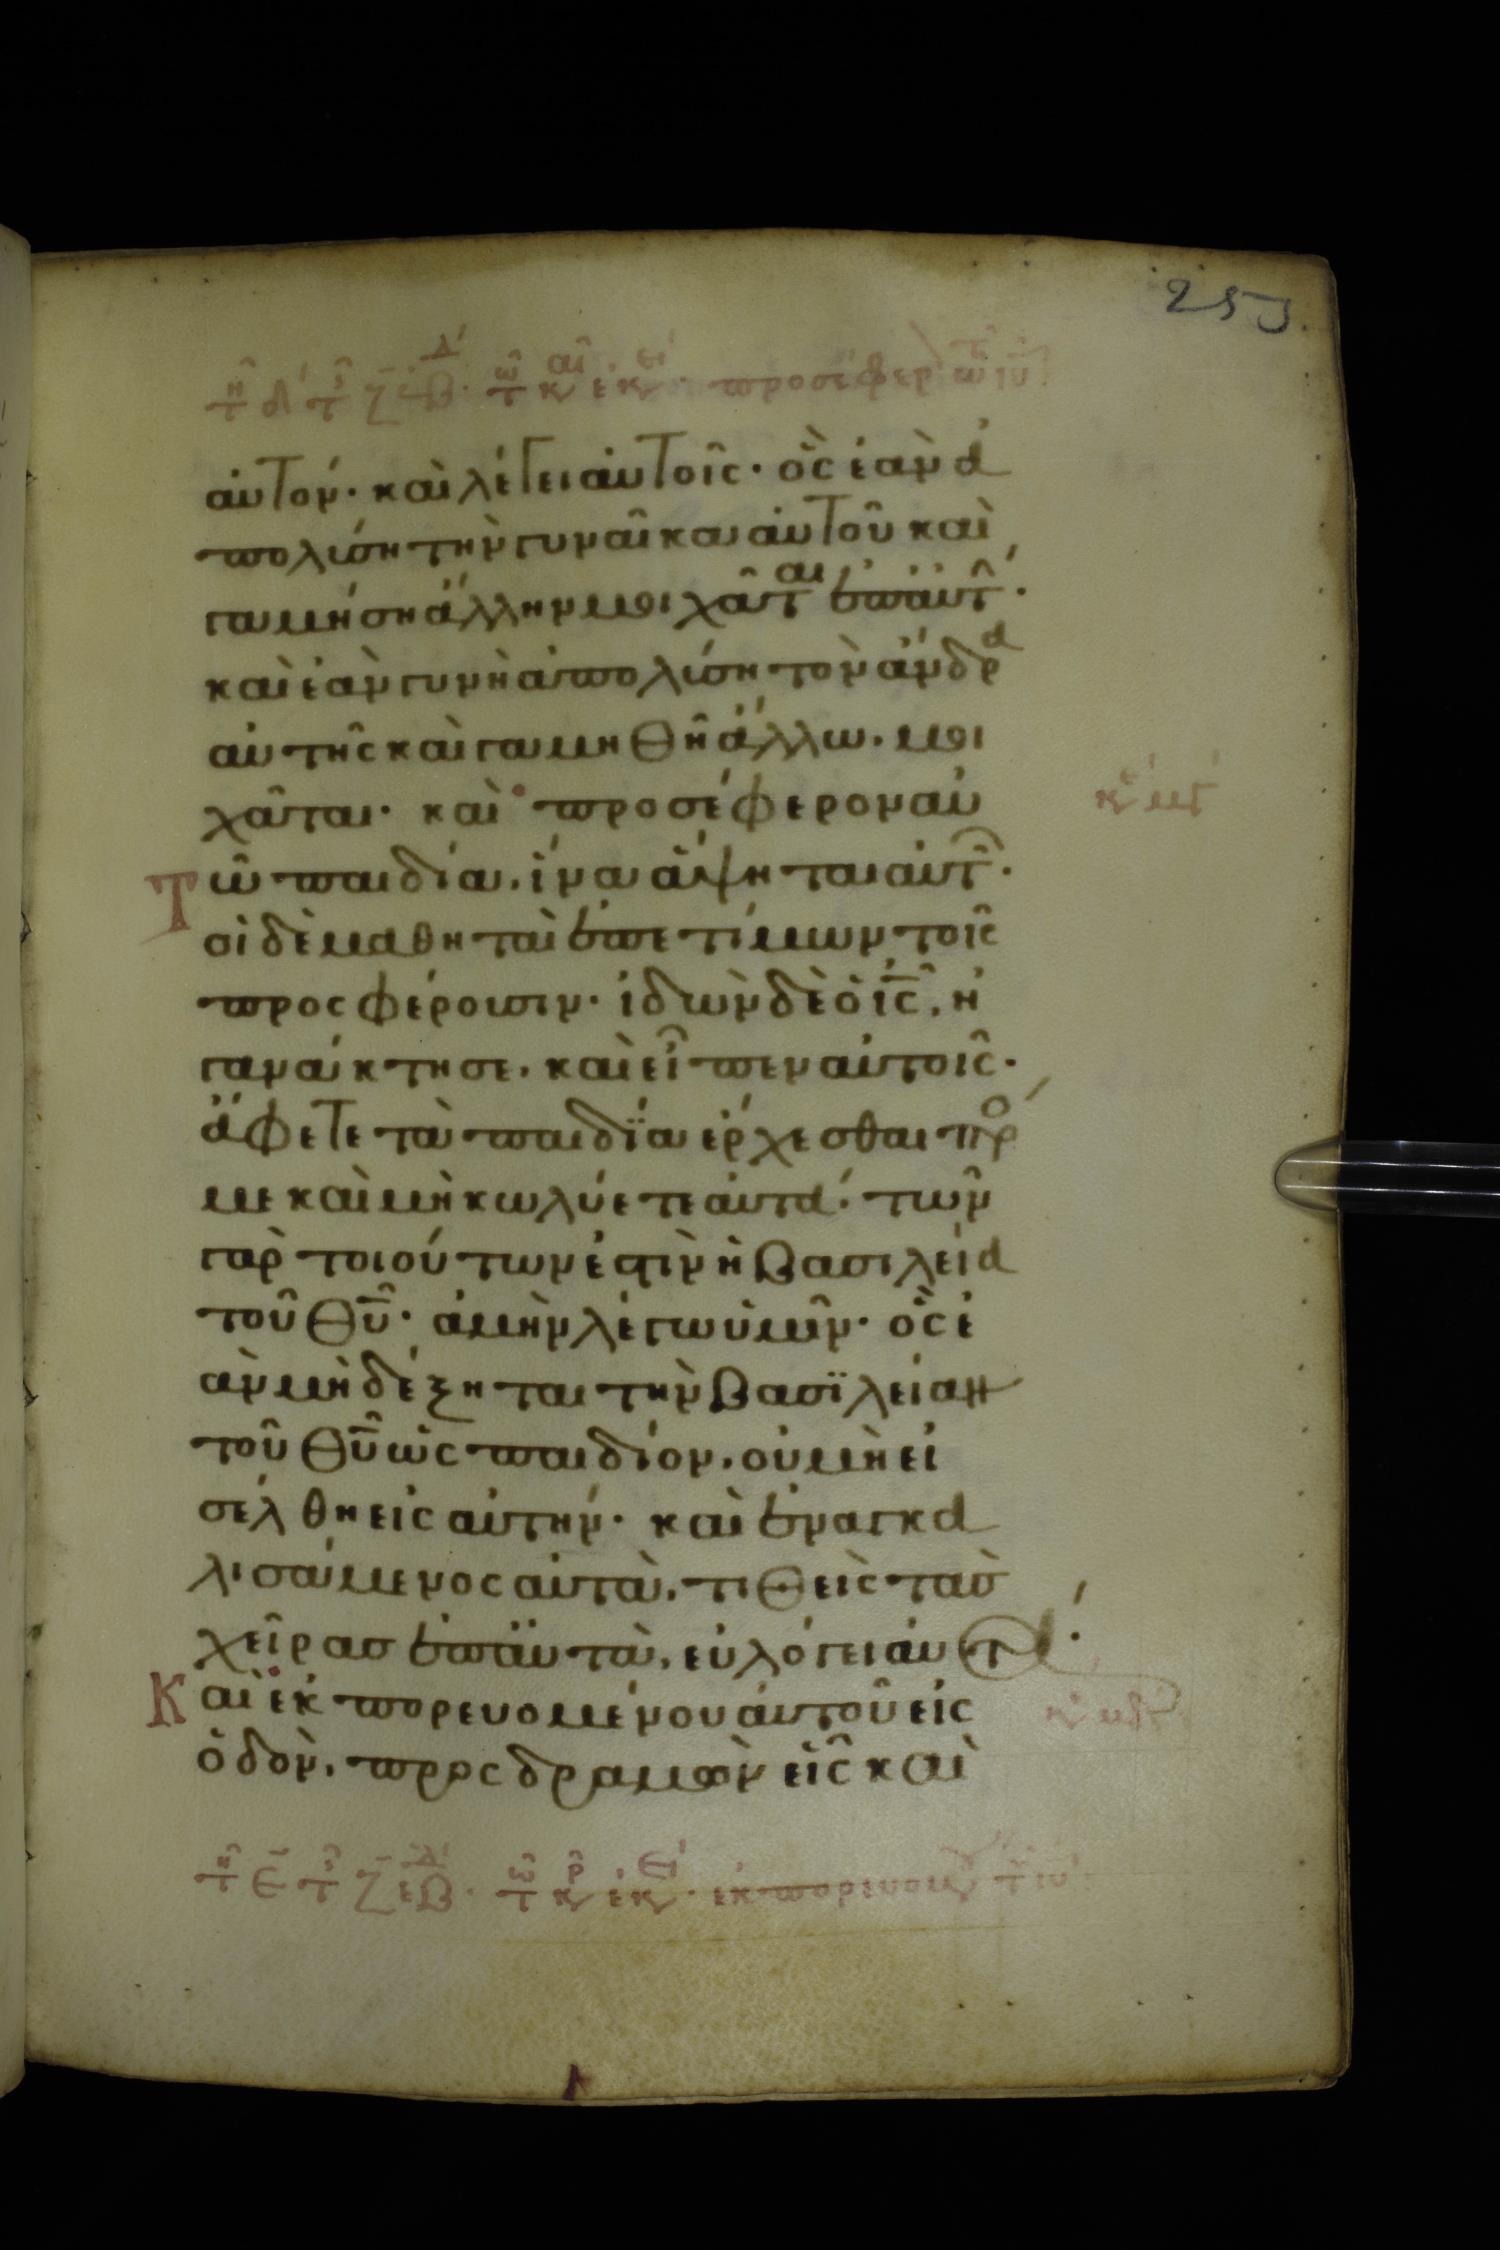 253
προσέφερ τῶ ιυ
αυτόν· και λέγει αυτοῖς· ὃς ἐὰν ἀ
πολύση τὴν γυναῖκα αυτοῦ καὶ
γαμήση ἄλλην μοιχᾶται ἐπ αυτ·
καὶ ἐὰν γυνὴ ἀπολύση τὸν άνδρα
αυτῆς καὶ γαμηθῆ ἄλλω. μοι
χᾶται· καὶ προσέφερον αυ
Τῶ παιδία. ἵνα άψηται αυτ·
οἱ δὲ μαθηταὶ ἐπετίμων τοῖς
προσφέρουσιν· ἰδὼν δὲ ὁ ις, ἠ
γανάκτησε. καὶ εἶπεν αυτοῖς·
ἄφετε τὰ παιδία έρχεσθαι πρ
με καὶ μὴ κωλύετε αυτά· τῶν
γὰρ τοιούτων ἐστὶν ἡ βασιλεία
τοῦ θυ· ἀμὴν λέγω ὑμῖν· ὃς ἐ
ὰν μὴ δέξηται τὴν βασιλείαν
τοῦ θυ ὡς παιδίον. ου μὴ εἰ
σέλθη εἰς αυτήν· καὶ ἐναγκα
λισάμενος αυτὰ. τιθεὶς τὰς
χεῖρας ἐπ αυτὰ. ευλόγει αυτά·
Καὶ ἐκπορευομένου αυτοῦ εἰς
ὁδὸν. προσδραμὼν εἷς καὶ